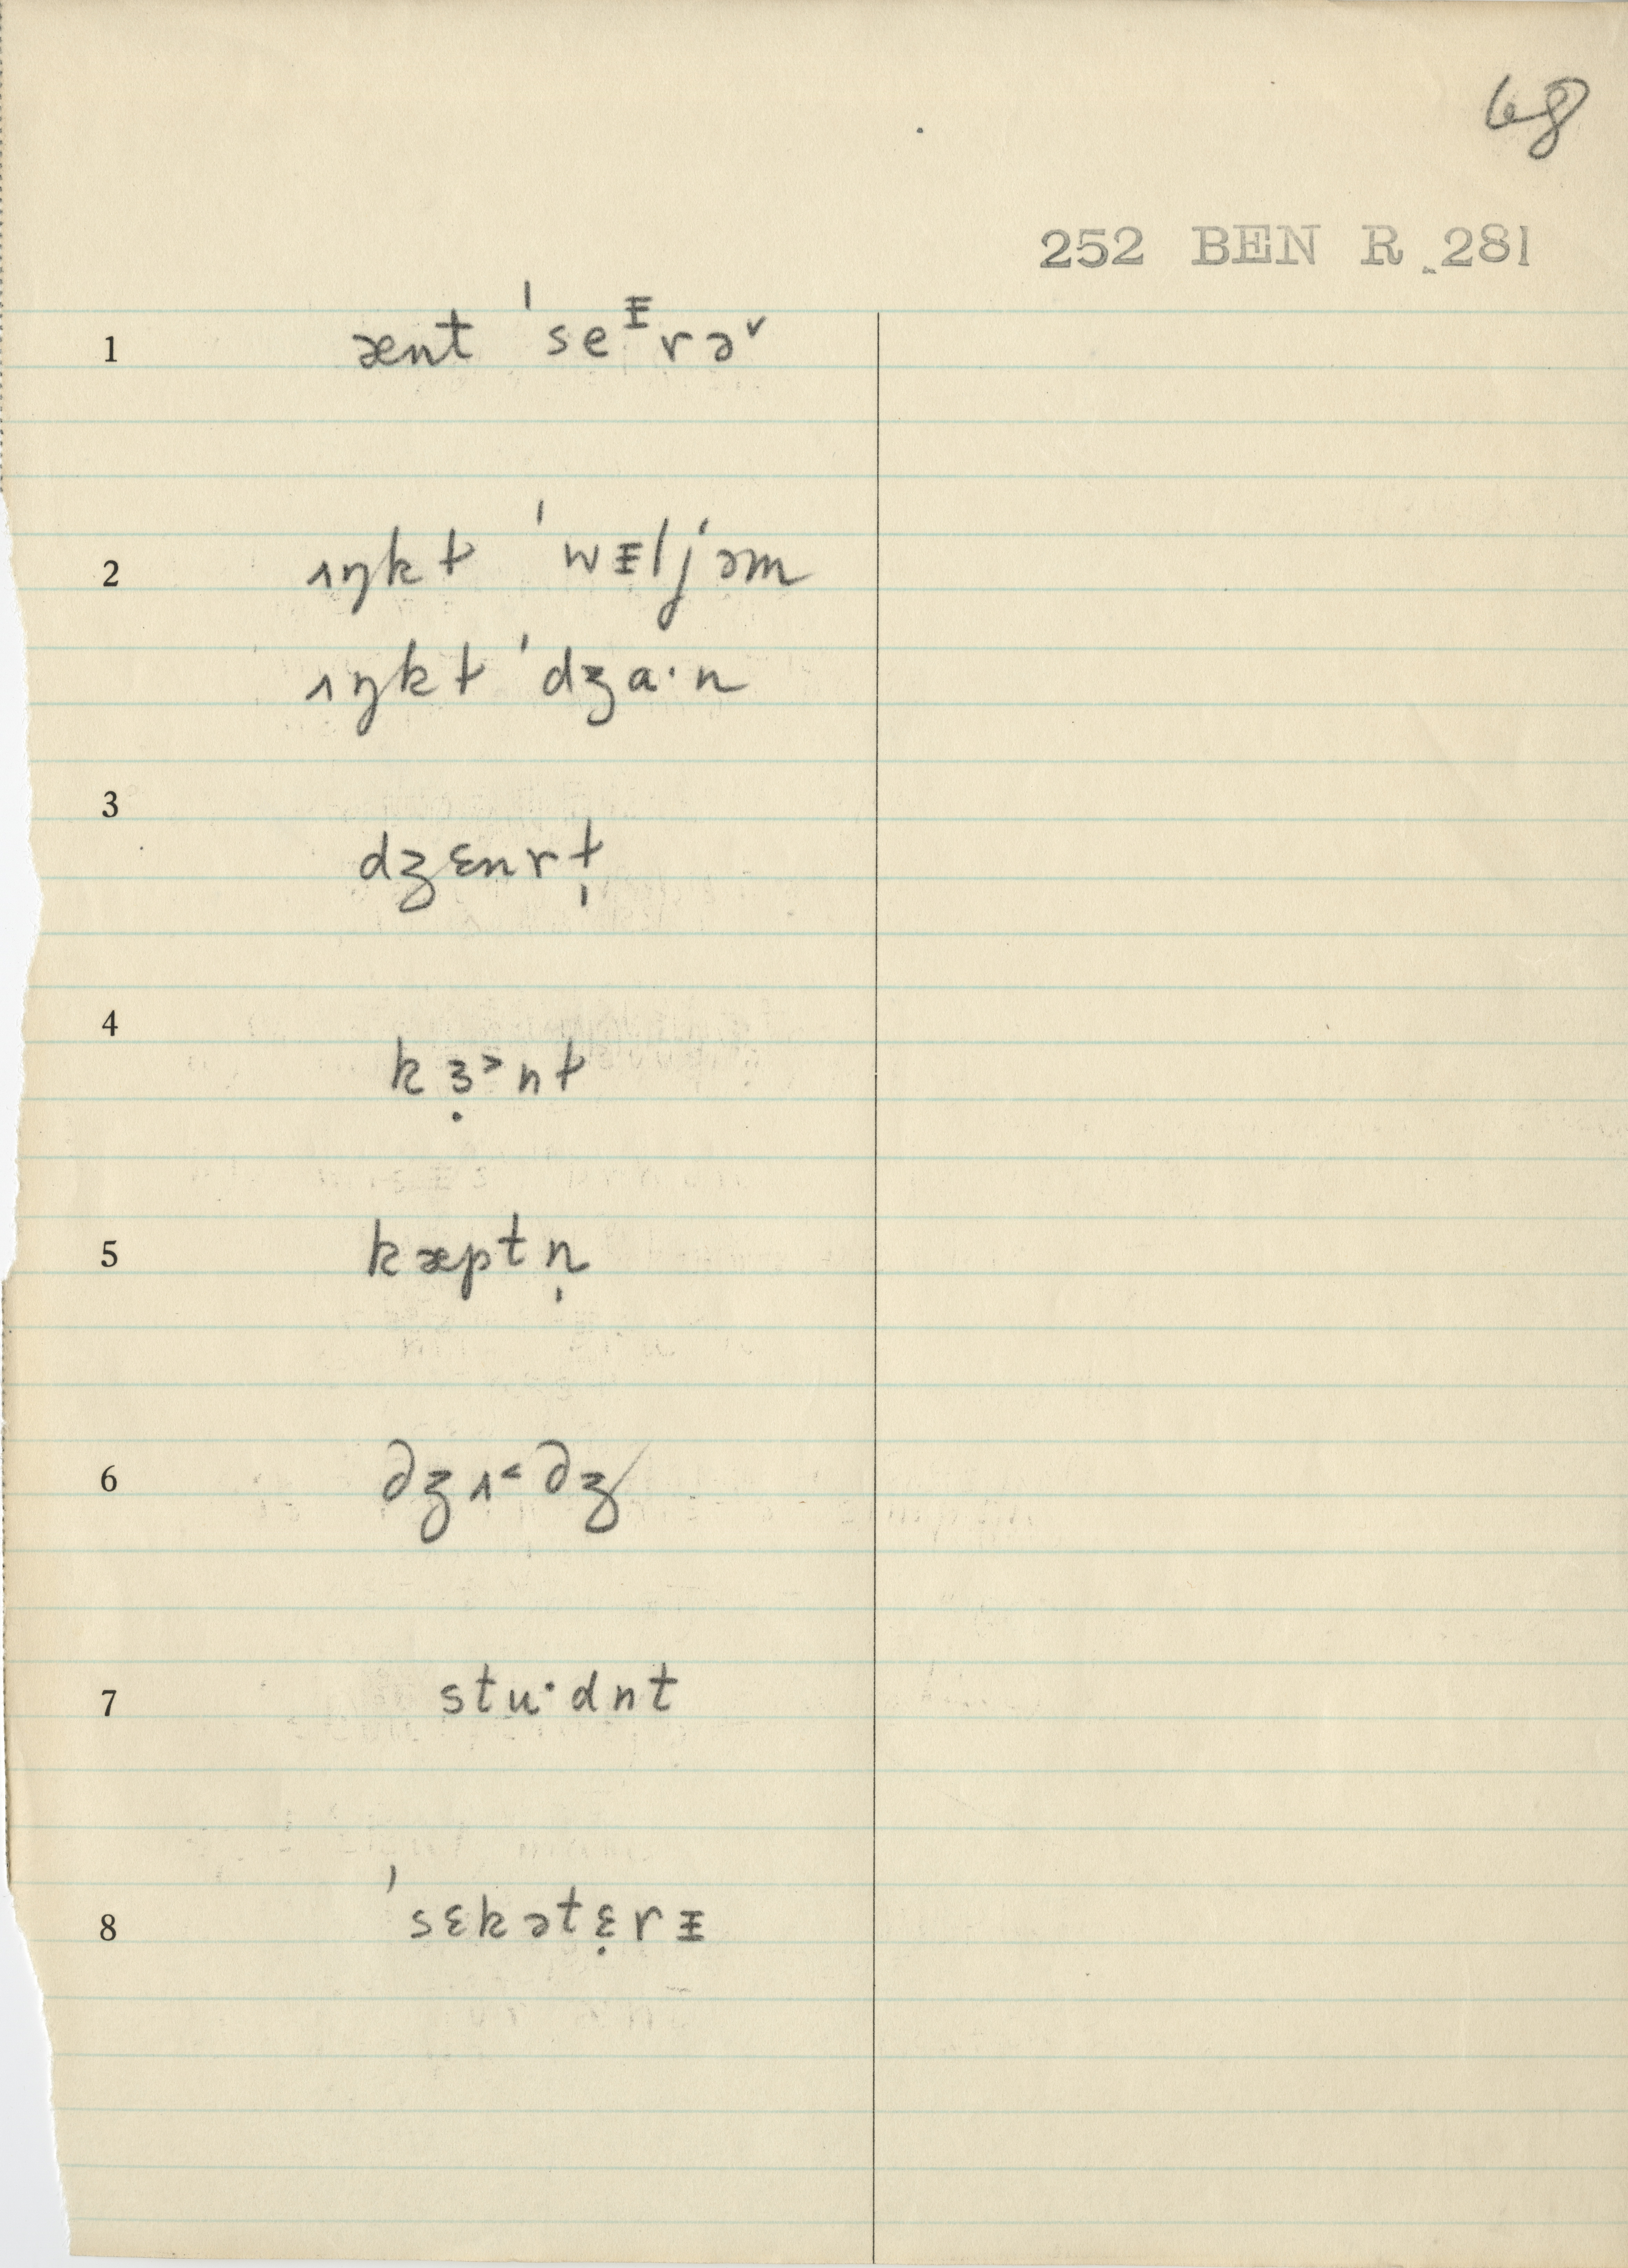 68
252 BEN R 281
1 ænt ˈseᵻrə˅
2 ʌŋkɫ ˈwᵻljəm
ʌŋkɫ ˈdʒa·n
3 dʒɛnrɫ̩
4 kɜ̣˃nɫ
5 kæptn̩
6 dʒʌ˂dʒ
7 stu·dnt
8 ˈsɛkətɛ̣rᵻ